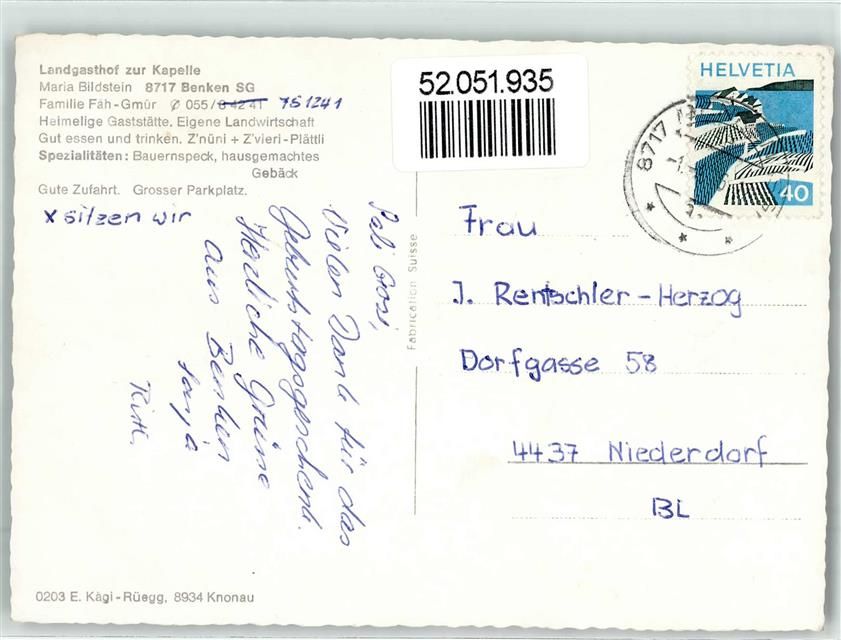 Landgasthof zur Kapelle
Maria Bildstein 8717 Benken SG
Familie Fäh-Gmür ✆ 055/8 42 41 751241
Heimelige Gaststätte. Eigene Landwirtschaft
Gut essen und trinken. Z'nüni + Z'vieri-Plättli
Spezialitäten: Bauernspeck, hausgemachtes
Gebäck
Gute Zufahrt. Grosser Parkplatz.
x sitzen wir
Sali Grosi,
Vielen Dank für das
Geburtstagsgeschenk.
Herzliche Grüsse
aus Benken
Sonja
52.051.935
HELVETIA
40
8717
Fabrication Suisse
Frau
J. Rentschler-Herzog
Dorfgasse 58
4437 Niederdorf
BL
0203 E. Kägi-Rüegg, 8934 Knonau